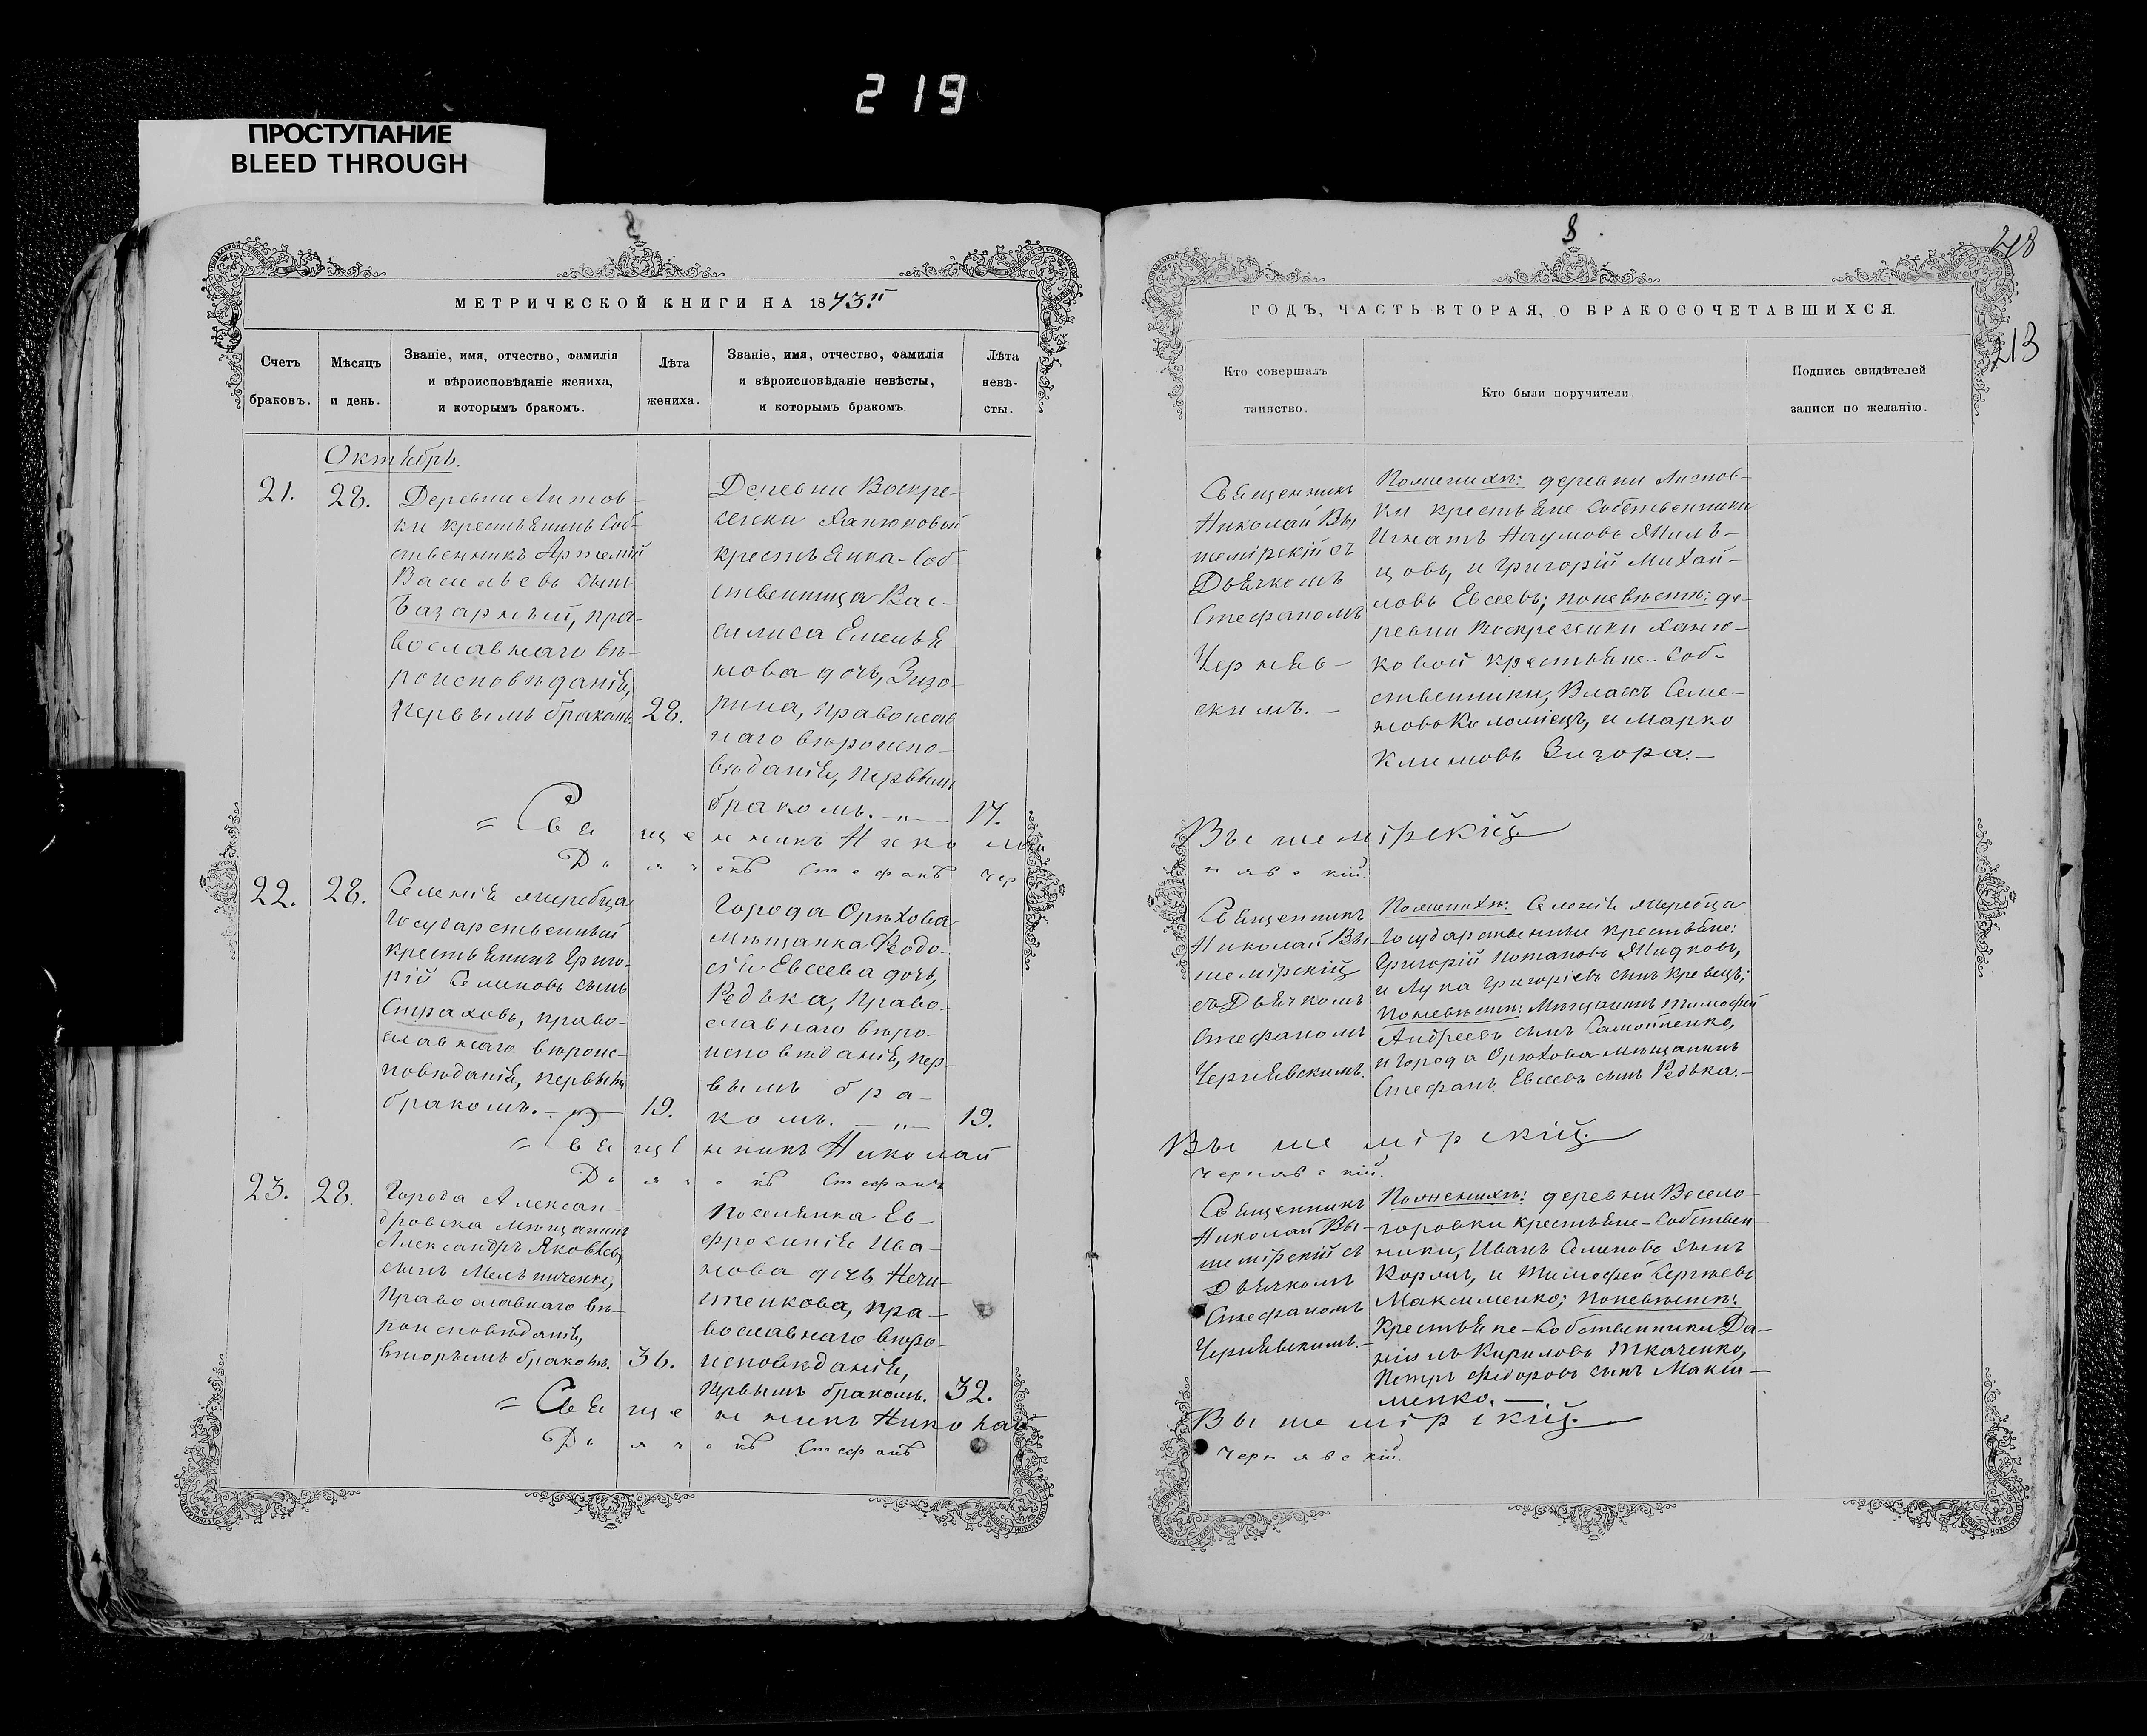 219
ПРОСТУПАНИЕ
BLEED THROUGH
8
МЕТРИЧЕСКОЙ КНИГИ НА 1873й
Счетъ браковъ.
Мѣсяцъ и день.
Званіе, имя, отчество, фамилія
и вѣроисповѣданіе жениха,
и которымъ бракомъ.
Лѣта жениха.
Званіе, имя, отчество, фамилія
и вѣроисповѣданіе невѣсты,
и которымъ бракомъ.
Лѣта невѣ-
сты.
Октябрь.
21.
28.
Деревни Литов-
ки крестьянинъ Соб-
ственникъ Артемій
Васильевъ сынъ
Базарный, пра-
вославнаго вѣ-
роисповѣданія,
первымъ бракомъ
28.
Деревни Воскре-
сенки Ханюковой
крестьянка-Соб-
ственница Вас-
силиса Емелья
нова дочь, Зизо-
рина, православ
наго вѣроиспо-
вѣданія, первымъ
бракомъ. „
17.
= Священникъ Николай
Дьячекъ Стефанъ Чер
22.
28.
Селенія Жеребца
Государственный
крестьянинъ Григо-
рій Семеновъ сынъ
Страховъ, право-
славнаго вѣроис-
повѣданія, первымъ
бракомъ.
19.
Города Орѣхова
мѣщанка Ѳедо-
сія Евсеева дочь,
Редька, право-
славнаго вѣро-
исповѣданія, пер-
вымъ бра-
комъ. „
19.
= Священникъ Николай
Дьячокъ Стефанъ
23.
28.
Города Алексан-
дровска мѣщанинъ
Александръ Яковлевъ
сынъ Мельниченко,
православнаго вѣ-
роисповѣданія,
вторымъ бракомъ.
36.
Поселянка Ев-
фросинія Ива-
нова дочь Нечи-
тенкова, пра-
вославнаго вѣро-
исповѣданія,
первымъ бракомъ.
32.
= Священникъ Николай
Дьячокъ Стефанъ
8
218
213
ГОДЪ, ЧАСТЬ ВТОРАЯ, О БРАКОСОЧЕТАВШИХСЯ.
Кто совершалъ
таинство.
Кто были поручители.
Подпись свидѣтелей
записи по желанію.
Священникъ
Николай Вы
шемірскій съ
Дьячкомъ
Стефаномъ
Черняв-
скимъ.
По женихѣ: деревни Литов-
ки крестьяне-Собственники
Игнатъ Наумовъ Жиль-
цовъ, и Григорій Михай-
ловъ Евсеевъ; по невѣстѣ: де-
ревни Воскресенки Ханю-
ковой крестьяне-Соб-
ственники, Власъ Семе-
новъ Коломіецъ, и Марко
Климовъ Зизора.
Вышемірскій
нявскій.
Священникъ
Николай Вы-
шемірскій
съ Дьячкомъ
Стефаномъ
Чернявскимъ.
По женихѣ: Селенія Жеребца
Государственные крестьяне:
Григорій Потаповъ Жидковъ,
и Лука Григоріевъ сынъ Кревецъ;
По невѣстѣ: Мѣщанинъ Тимофей
Андреевъ сынъ Самойленко,
и города Орѣхова мѣщанинъ
Стефанъ Евсеевъ сынъ Редька.
Вышемірскій.
Чернявскій.
Священникъ
Николай Вы-
шемірскій съ
Дьячкомъ
Стефаномъ
Чернявскимъ.
По женихѣ: деревни Весело-
горовки крестьяне-Собствен
ники, Иванъ Семеновъ сынъ
Коржъ, и Тимофей Сергѣевъ
Максименко; По невѣстѣ:
Крестьяне-Собственники Да-
ніилъ Кириловъ Ткаченко,
Петръ Федоровъ сынъ Макси-
менко.
Вышемірскій.
Чернявскій.